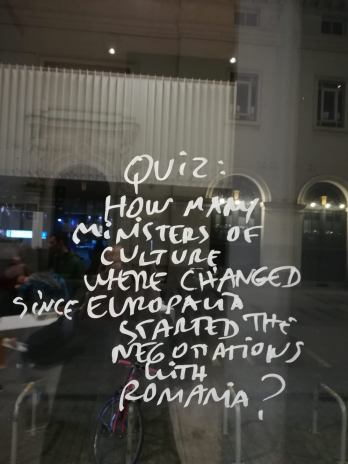 QUIZ:
HOW MANY
MINISTERS OF
CULTURE
WHERE CHANGED
SINCE EUROPALIA
STARTED THE
NEGOTIATIONS
WITH
ROMANIA?